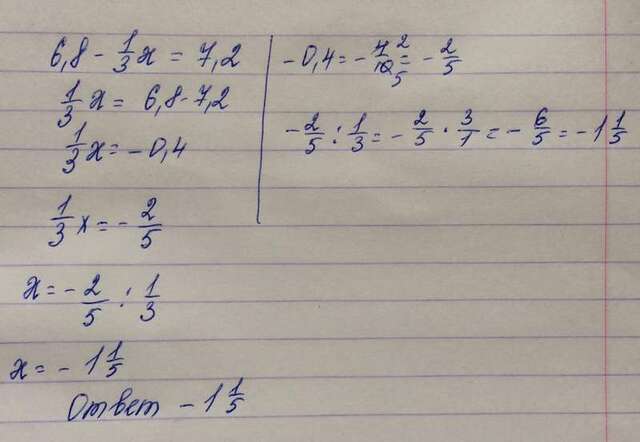 6,8 - 1/3 x = 7,2
1/3 x = 6,8 - 7,2
1/3 x = -0,4
1/3 x = - 2/5
x = - 2/5 : 1/3
x = - 1 1/5
Ответ - 1 1/5
-0,4 = - 4/10 2/5 = - 2/5
- 2/5 : 1/3 = - 2/5 · 3/1 = - 6/5 = - 1 1/5